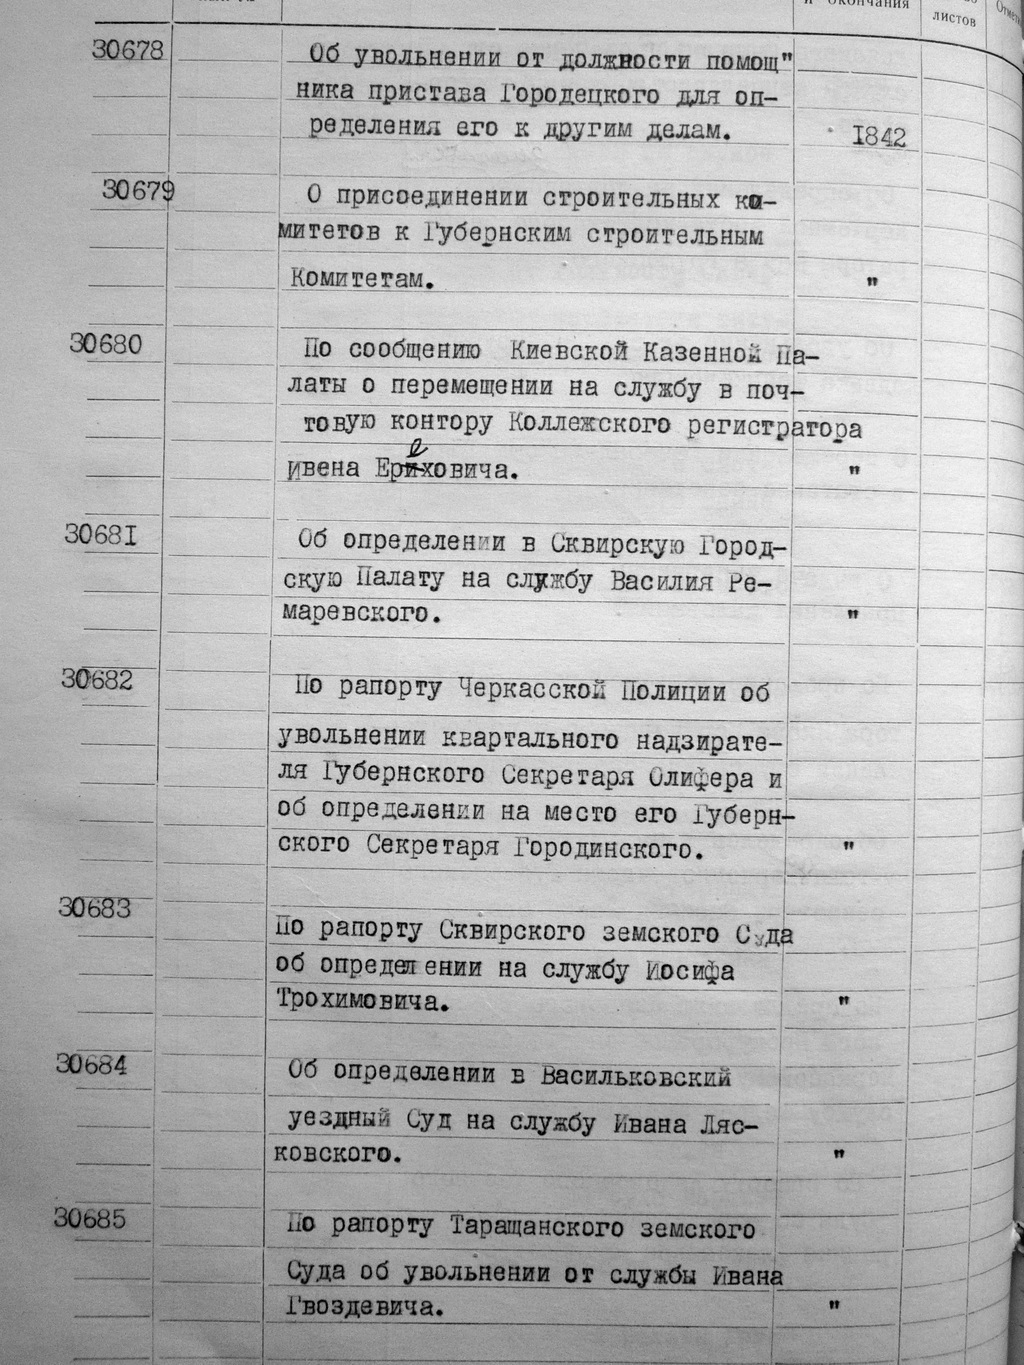 и окончания
листов
30678
Об увольнении от должности помощ"
ника пристава Городецкого для оп-
ределения его к другим делам.
1842
30679
О присоединении строительных ко-
митетов к Губернским строительным
Комитетам.
"
30680
По сообщению Киевской Казенной Па-
латы о перемещении на службу в поч-
товую контору Коллежского регистратора
ивена Ереховича.
"
30681
Об определении в Сквирскую Город-
скую Палату на службу Василия Ре-
маревского.
"
30682
По рапорту Черкасской Полиции об
увольнении квартального надзирате-
ля Губернского Секретаря Олифера и
об определении на место его Губерн-
ского Секретаря Городинского.
"
30683
По рапорту Сквирского земского Суда
об определении на службу Иосифа
Трохимовича.
"
30684
Об определении в Васильковский
уездный Суд на службу Ивана Ляс-
ковского.
"
30685
По рапорту Таращанского земского
Суда об увольнении от службы Ивана
Гвоздевича.
"